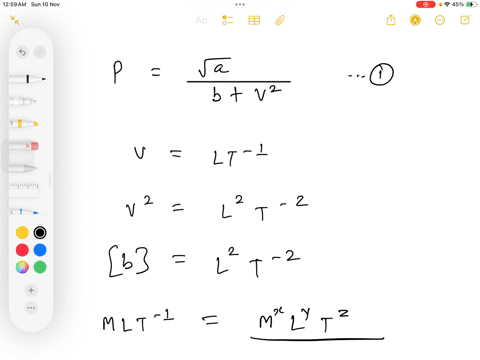 12:59 AM Sun 10 Nov
45%
Aa
P = √a / (b + v²) ... ①
v = LT⁻¹
v² = L² T⁻²
[b] = L² T⁻²
MLT⁻¹ = Mˣ Lʸ Tᶻ